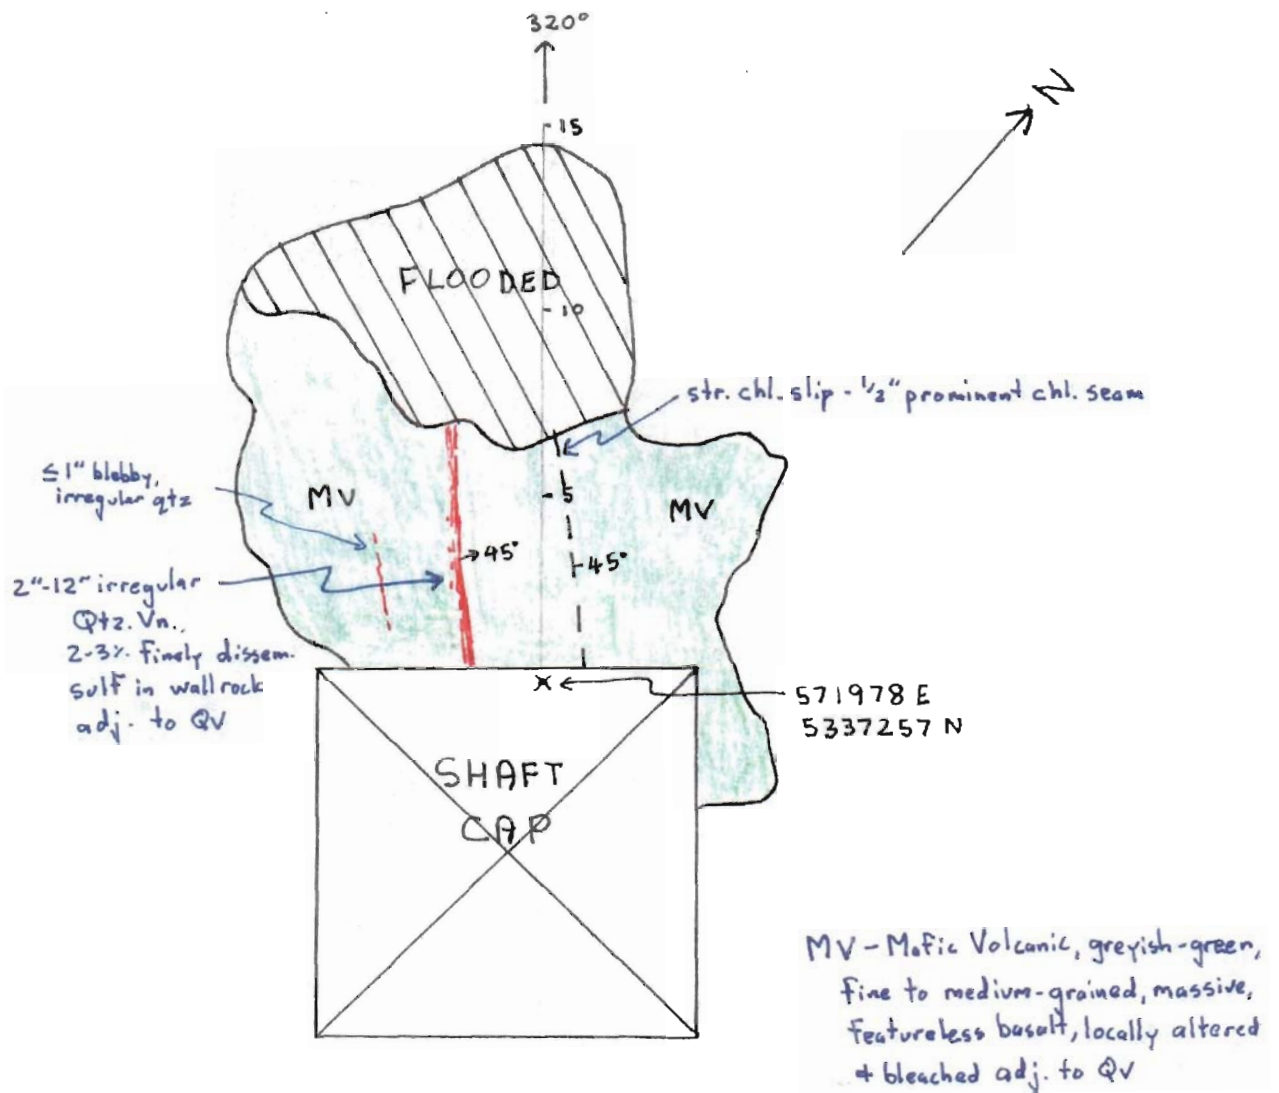 320°
N
15
FLOODED
10
str. chl. slip - 1/2" prominent chl. seam
≤ 1" blebby,
irregular qtz
MV
5
MV
45°
45°
2"-12" irregular
Qtz. Vn.,
2-3% finely dissem.
sulf in wallrock
adj. to QV
571978 E
5337257 N
SHAFT
CAP
MV - Mafic Volcanic, greyish-green,
fine to medium-grained, massive,
featureless basalt, locally altered
+ bleached adj. to QV